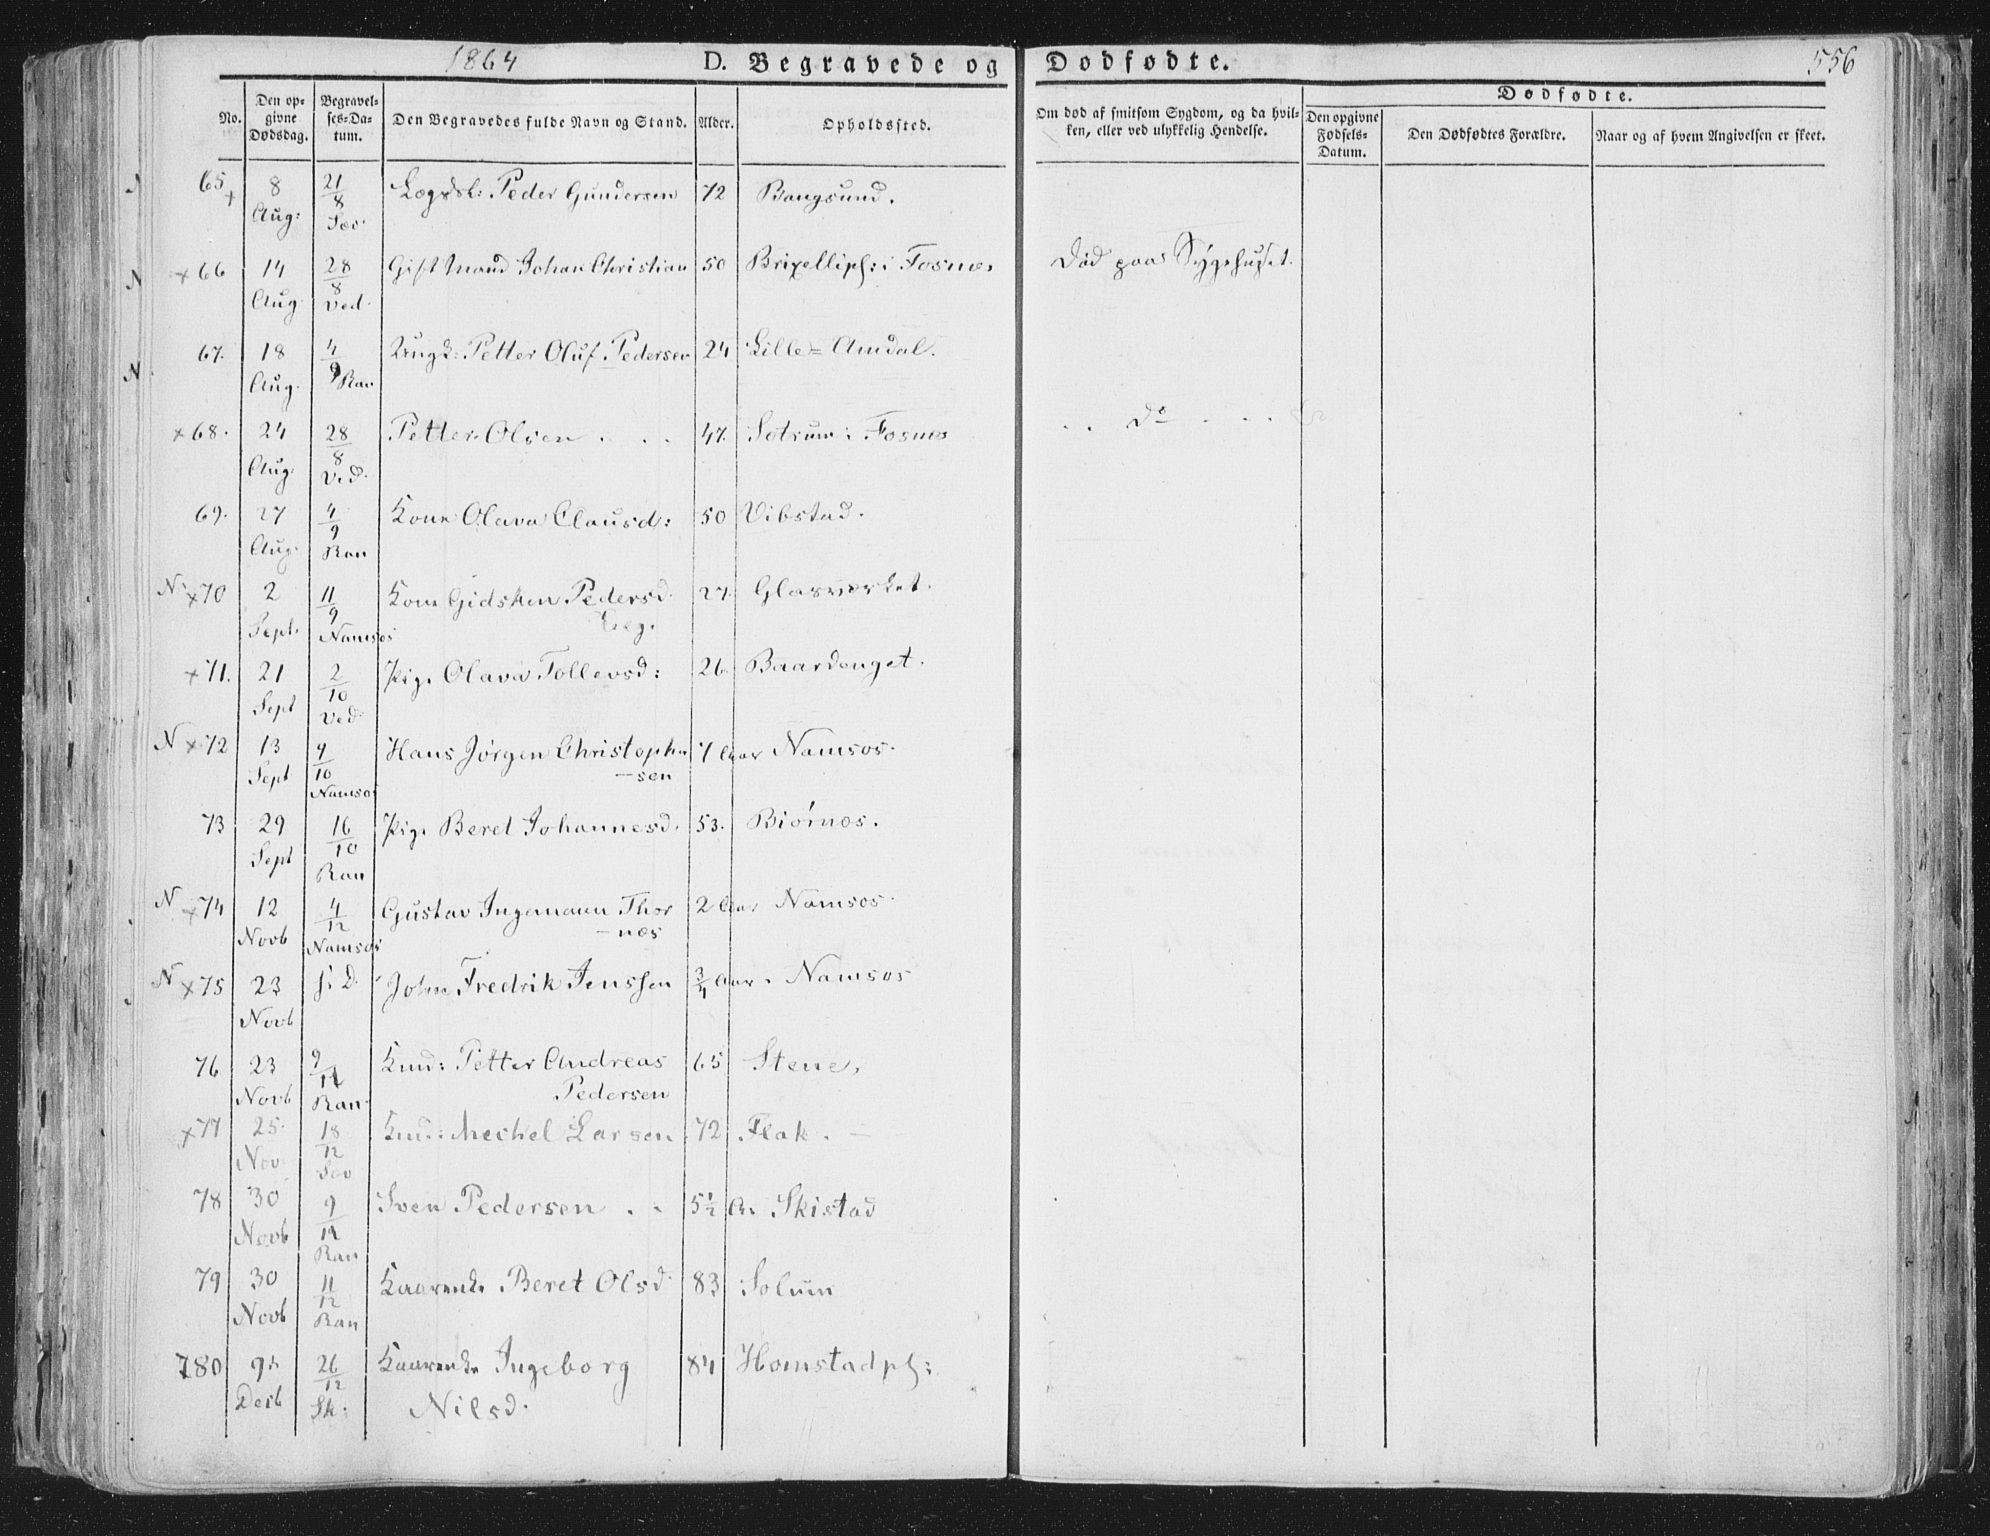 1864 D. Begravede og Dødfødte. 556
No. Den opgivne Dødsdag. Begravelses-Datum. Den Begravedes fulde Navn og Stand. Alder. Opholdssted. Om død af smitsom Sygdom, og da hvilken, eller ved ulykkelig Hendelse. Dødfødte.
Den opgivne Fødsels-Datum. Den Dødfødtes Forældre. Naar og af hvem Angivelsen er skeet.
65 8 Aug: 21/8 Sæv. Lægdsl: Peder Gundersen 72 Bangsund.
N x66 14 Aug 28/8 Ved. Gift Mand Johan Christian 50 i Fosnæs Död paa Sygehuset.
N 67. 18 Aug. 4/9 Ran Ungk: Petter Oluf Pedersen 24 Lille=Amdal.
x68. 24 Aug. 28/8 Ved. Petter Olsen . . . 47. Sotrum i Fosnæs . . Do . . .
69. 27 Aug. 4/9 Ran Kone Olava Clausd: 50 Vibstad.
N x70 2 Sept. 11/9 Namsos Kone Gidsken Pedersd. 27. Glasværket.
x71. 21 Sept 2/10 Ved. Pig. Olava Tollevsd: 26. Baardenget.
N x72 13 Sept 9/10 Namsos Hans Jørgen Christoph-
-sen 7 Aar Namsos.
73 29 Sept 16/10 Ran Pig. Beret Johannesd. 53. Biörnæs.
N x74 12 Novb 4/12 Namsos Gustav Ingemann Thor
-næs 2 Aar Namsos.
N x75 23 Novb s. D. John Fredrik Jenssen 3/4 Aar. Namsos
76 23 Novb Ran. Kmd: Petter Andreas
Pedersen 65 Stene,
x77 25. Nov. 18/12 Sæv Kmd: Mechel Larsen 72 Flak. -
78 30 Novb Ran Sven Pedersen . . 5 1/2 A. Skistad
79 30 Novb 11/12 Ran Kaarenke Beret Olsd 83 Solum
780 9 Decb 26/12 Sk: Kaarenke Ingeborg
Nilsd. 84 Homstadpl: